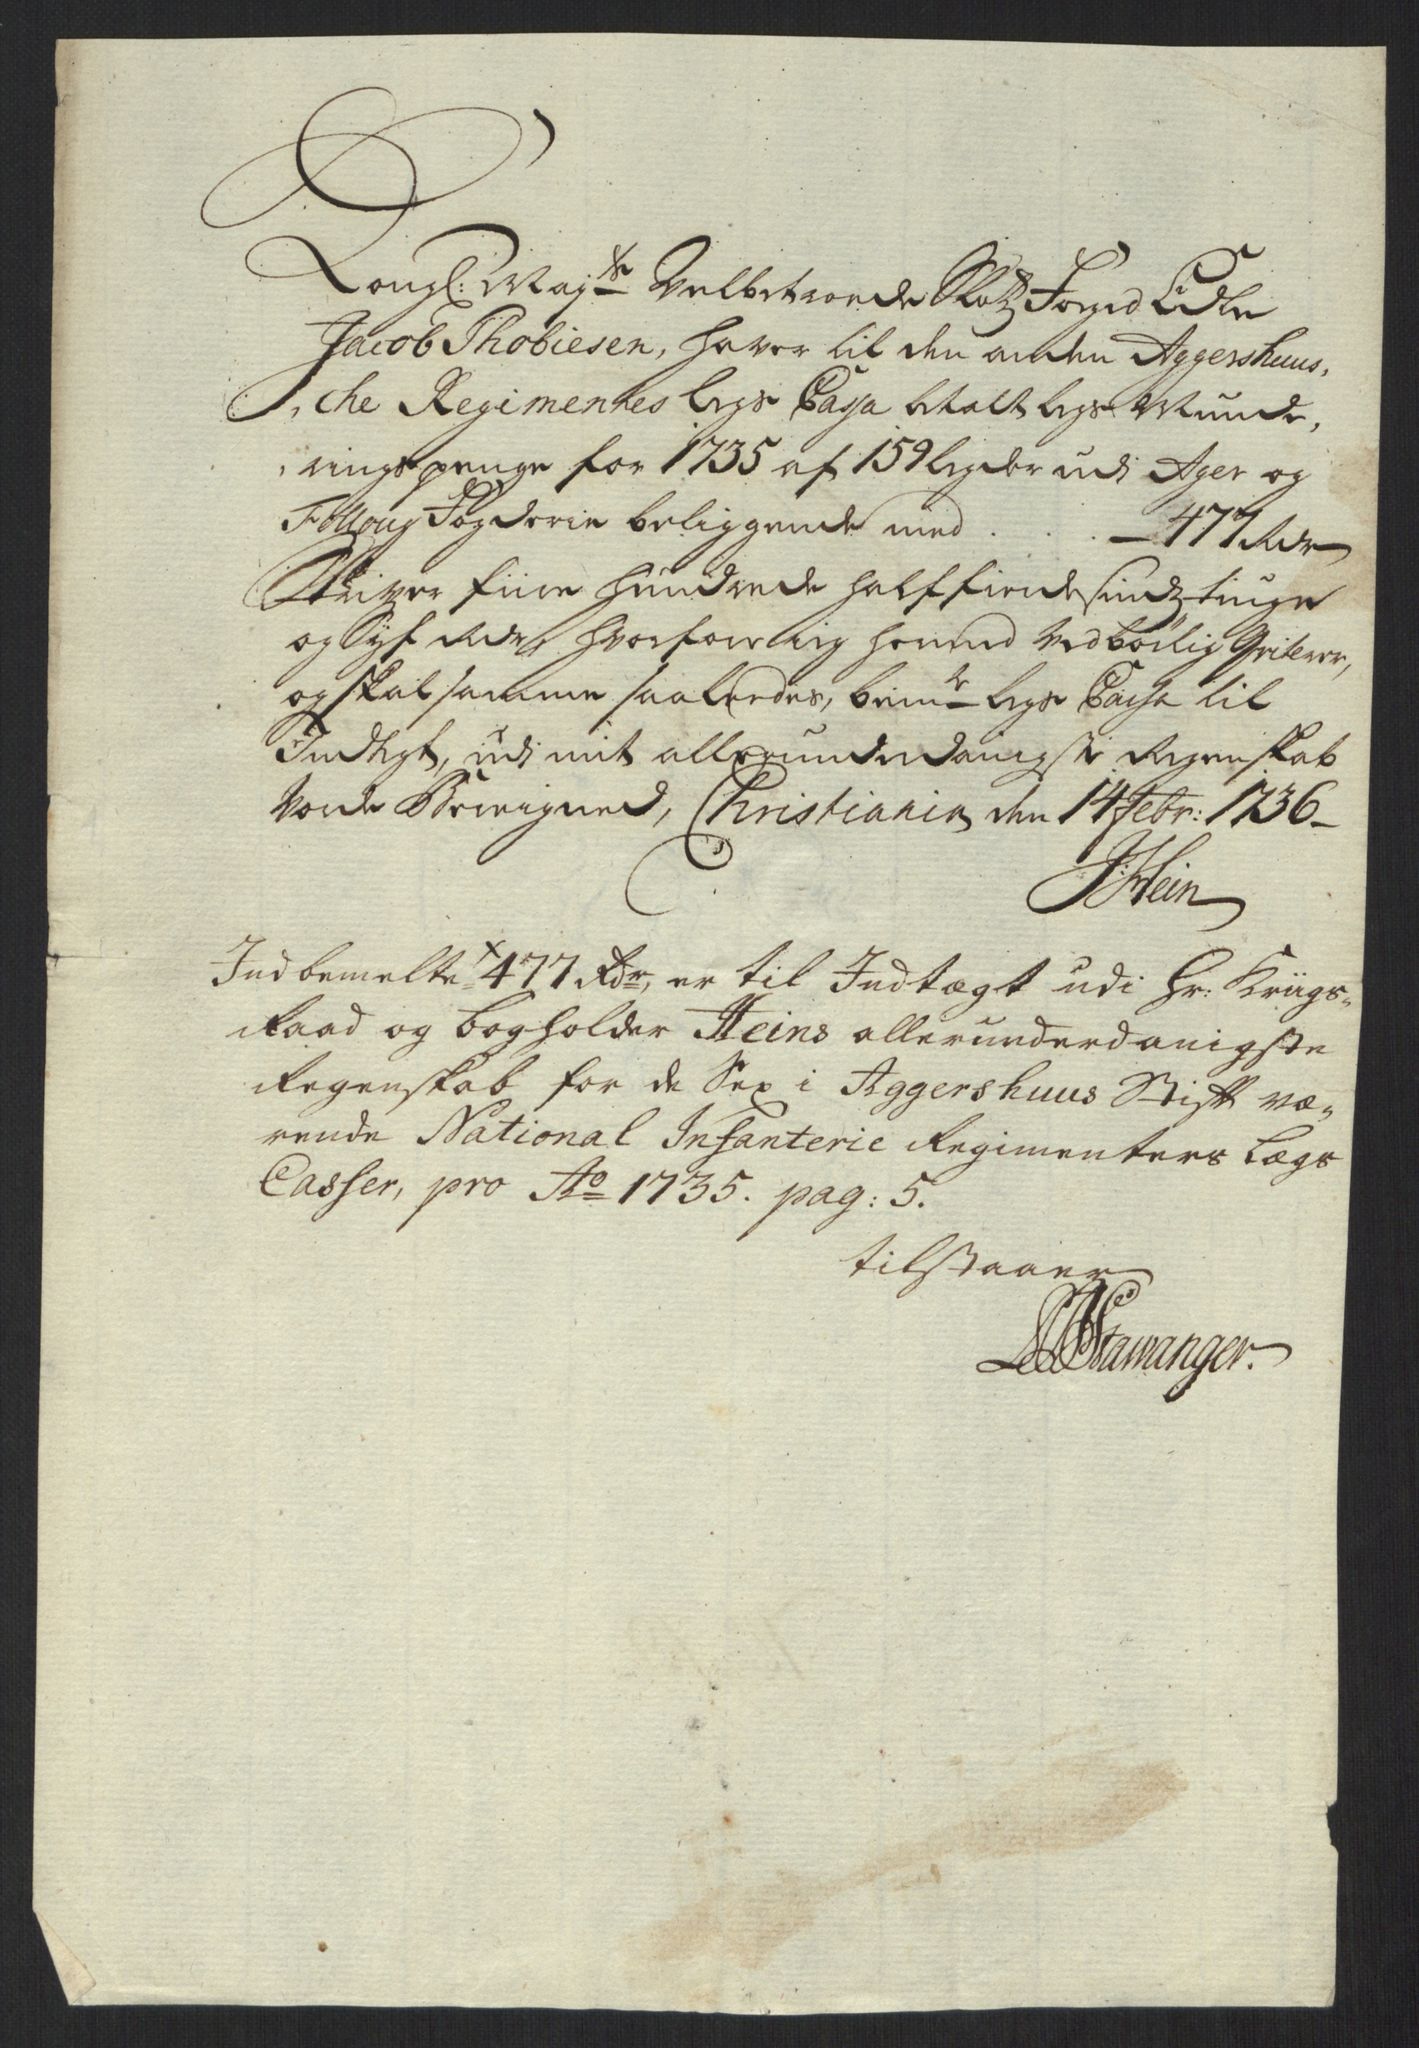 Kongl: Maÿts Velbetroede Slotz Foged Edle
Jacob Thobiesen, haver til den anden Aggershuus,
,che Regimentes legs Cassa betalt legs Munde,
,ringspenge for 1735 af 159 legder udi Ager og
Folloug Fogderie beliggende med . . . — 477 Rdr
Skriver fiire hundrede halffierdesindztiuge
og Syf Rdr, hvorfore ieg hermed Vedbörlig Qviterer,
og skal samme saaledes, bemte legs Cassa til
Indtegt, udi mit allerunderdanigste Regenskab
Vorde Bereigned, Christiania den 14 Febr: 1736
JHein
Indbemelte x 477 Rdr, er til Indtægt udi Hr: Kriigs-
Raad og bogholder Heins allerunderdanigste
Regenskab for de Sex i Aggershuus Stift væ-
rende National Infanterie Regimenters Lægs
Casser, pro Ao 1735. pag: 5.
tilstaaer
Stawanger.